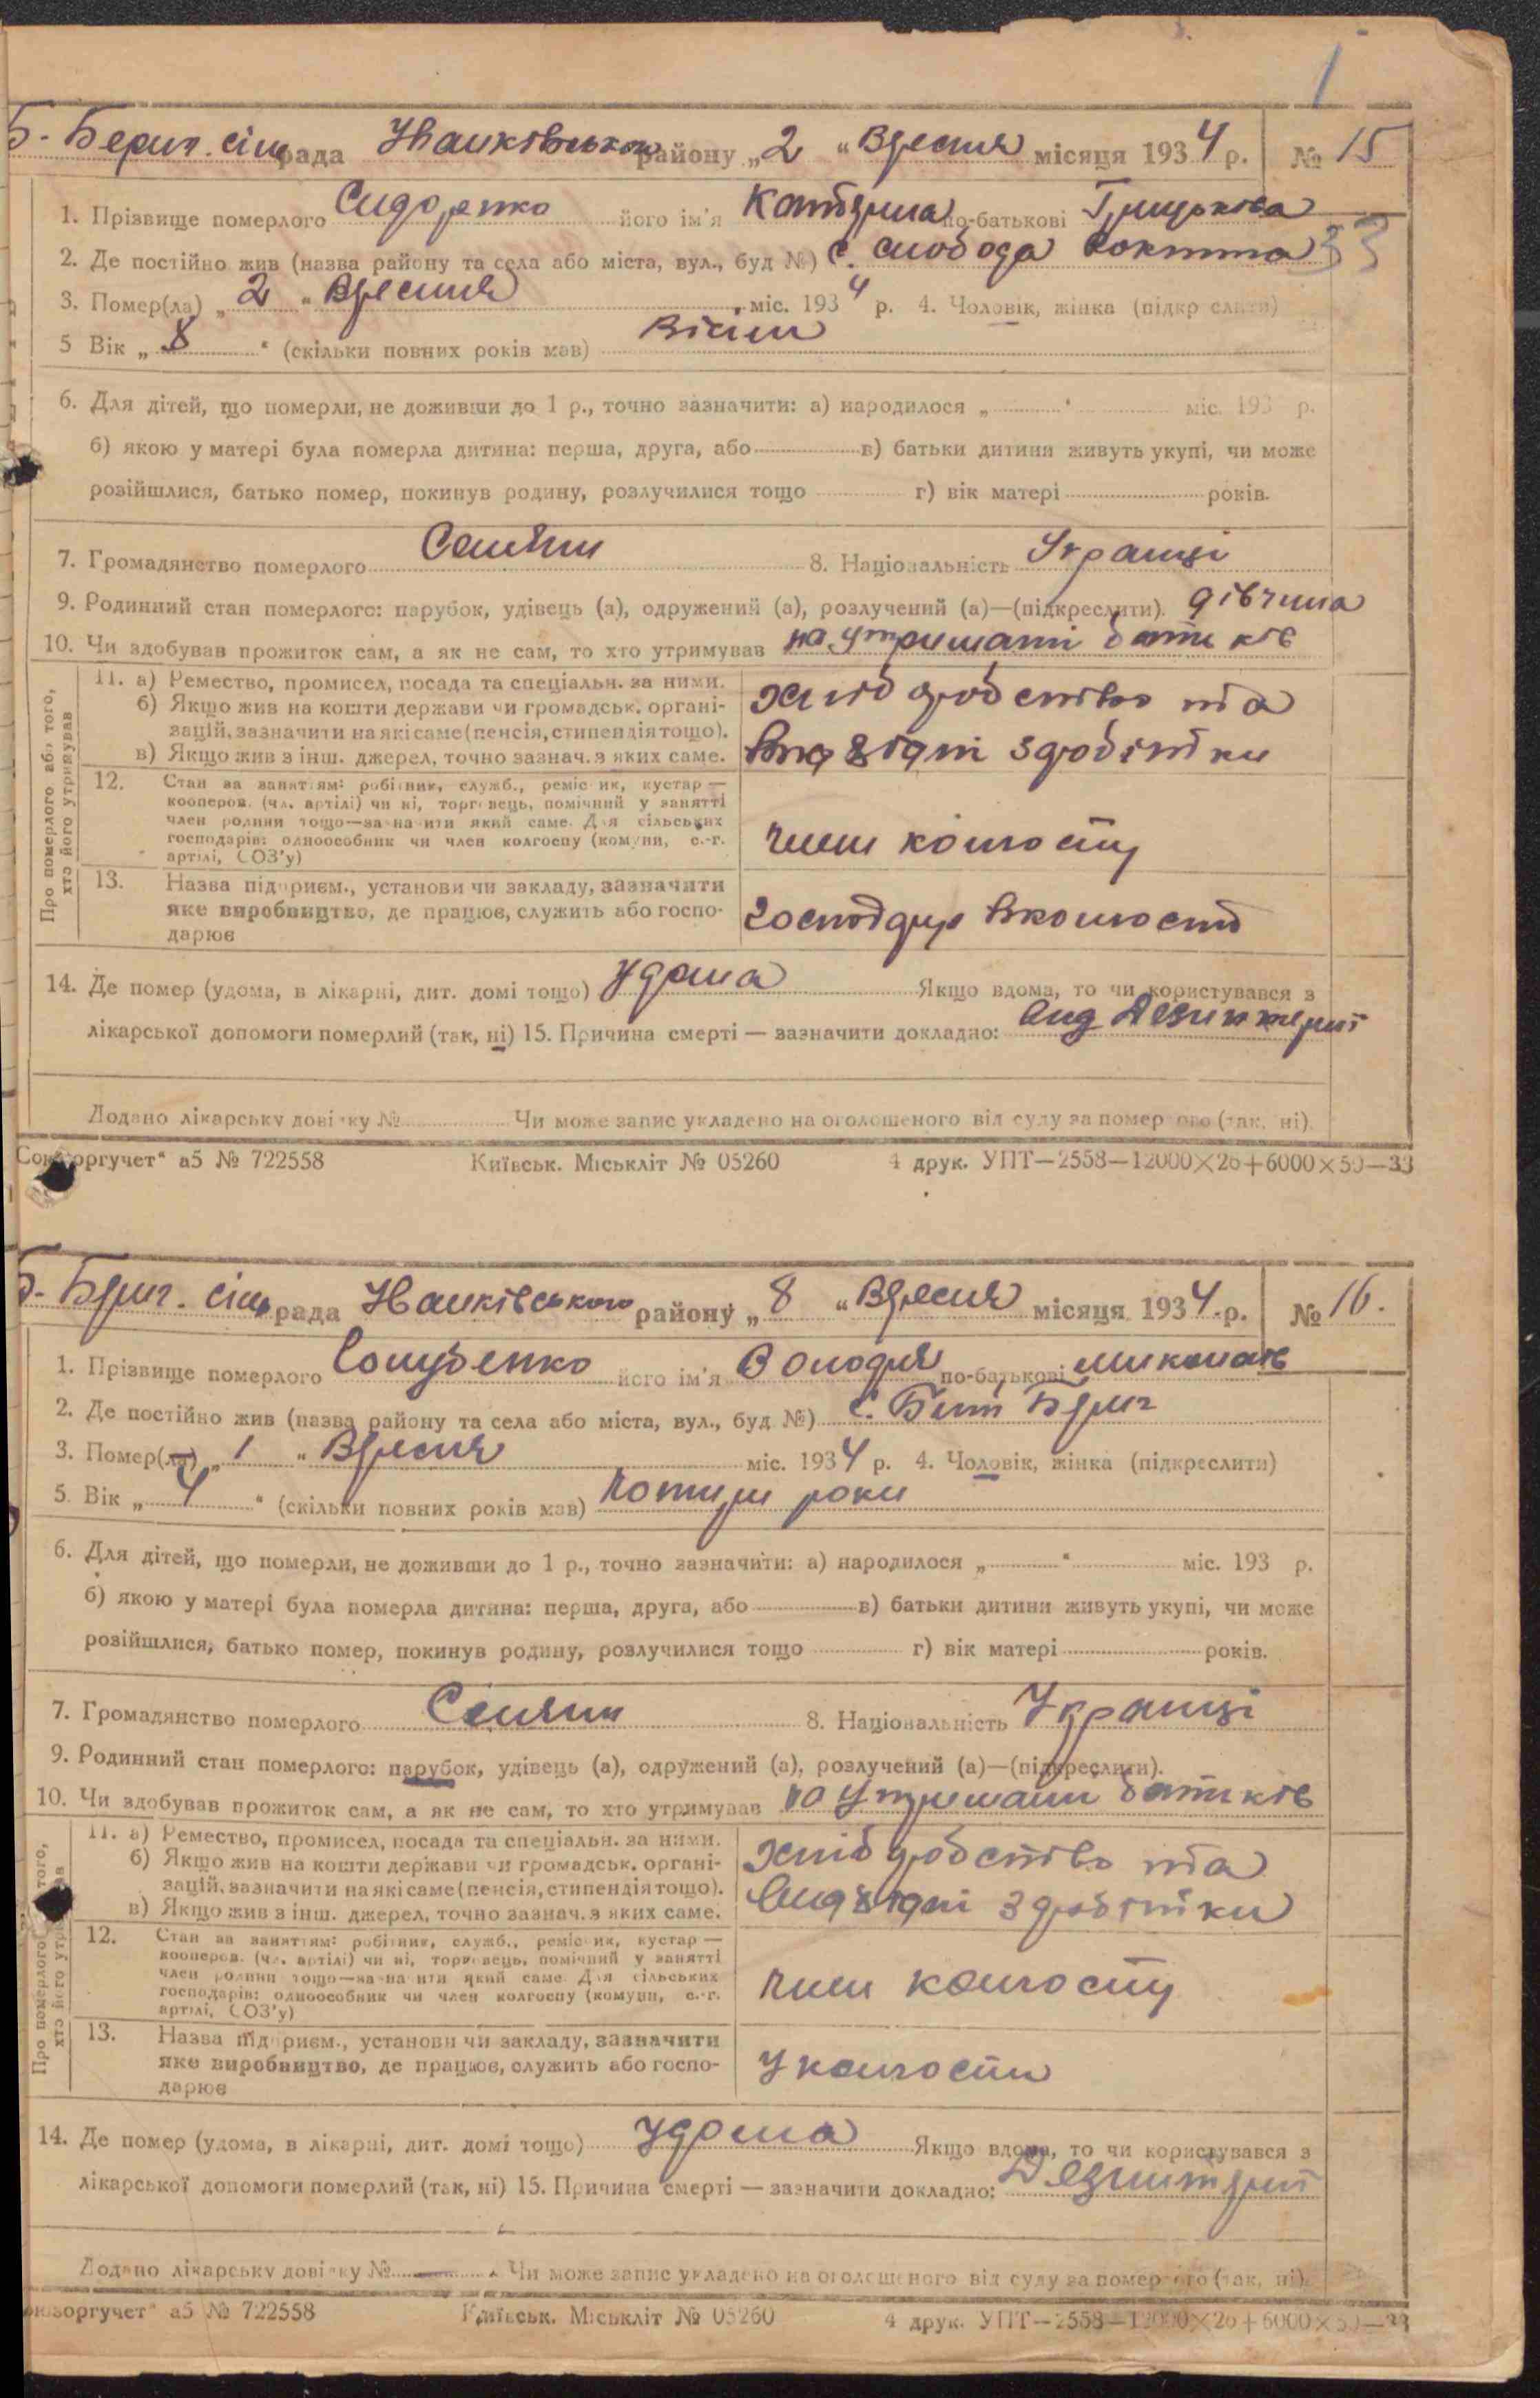 1
Б-Берич. сіль рада Іванківського району „2“ Вресня місяця 1934 р. № 15
33
1. Прізвище померлого Сидоренко його ім'я Катерина по-батькові Грицькова
2. Де постійно жив (назва району та села або міста, вул., буд №) с. слобода
3. Помер(ла) „2“ Вресня міс. 1934 р. 4. Чоловік, жінка (підкреслити)
5 Вік „8“ (скільки повних років мав) Вісім
6. Для дітей, що померли, не доживши до 1 р., точно зазначити: а) народилося „ “ міс. 193 р.
б) якою у матері була померла дитина: перша, друга, або в) батьки дитини живуть укупі, чи може
розійшлися, батько помер, покинув родину, розлучилися тощо г) вік матері років.
7. Громадянство померлого Селяни 8. Національність Українці
9. Родинний стан померлого: парубок, удівець (а), одружений (а), розлучений (а)—(підкреслити). дівчина
10. Чи здобував прожиток сам, а як не сам, то хто утримував на утриманні батьків
Про померлого або того, хто його утримував
11. а) Ремество, промисел, посада та спеціальн. за ними.
б) Якщо жив на кошти держави чи громадськ. органі-
зацій, зазначити на які саме (пенсія, стипендія тощо).
в) Якщо жив з інш. джерел, точно зазнач. з яких саме.
хліборобство та
здобітки
12. Стан за заняттям: робітник, служб., реміс ик, кустар —
кооперов. (чл. артілі) чи ні, торговець, помічний у занятті
член родини тощо—зазначити який саме Для сільських
господарів: одноособник чи член колгоспу (комуни, с.-г.
артілі, СОЗ'у)
член колгоспу
13. Назва підприєм., установи чи закладу, зазначити
яке виробництво, де працює, служить або госпо-
дарює
господарь вколгоспі
14. Де помер (удома, в лікарні, дит. домі тощо) Удома Якщо вдома, то чи користувався з
лікарської допомоги померлий (так, ні) 15. Причина смерті — зазначити докладно: від Дезинтерії
Додано лікарську довідку № Чи може запис укладено на оголошеного від суду за померлого (так, ні).
Союзоргучет“ а5 № 722558 Київськ. Міськліт № 05260 4 друк. УПТ—2558—12000×26+6000×50—33
Б-Берич. сіль рада Іванківського району „8“ Вресня місяця 1934 р. № 16.
1. Прізвище померлого Голубенко його ім'я Володя по-батькові Миколаїв
2. Де постійно жив (назва району та села або міста, вул., буд №) с. Біли Берег
3. Помер(ла) „1“ Вресня міс. 1934 р. 4. Чоловік, жінка (підкреслити)
5. Вік „4“ (скільки повних років мав) Чотири роки
6. Для дітей, що померли, не доживши до 1 р., точно зазначити: а) народилося „ “ міс. 193 р.
б) якою у матері була померла дитина: перша, друга, або в) батьки дитини живуть укупі, чи може
розійшлися, батько помер, покинув родину, розлучилися тощо г) вік матері років.
7. Громадянство померлого Селяни 8. Національність Українці
9. Родинний стан померлого: парубок, удівець (а), одружений (а), розлучений (а)—(підкреслити).
10. Чи здобував прожиток сам, а як не сам, то хто утримував на утриманні батьків
Про померлого того, хто його утри ва
11. а) Ремество, промисел, посада та спеціальн. за ними.
б) Якщо жив на кошти держави чи громадськ. органі-
зацій, зазначити на які саме (пенсія, стипендія тощо).
в) Якщо жив з інш. джерел, точно зазнач. з яких саме.
хліборобство та
здобітки
12. Стан за заняттям: робітник, служб., реміс ик, кустар —
кооперов. (чл. артілі) чи ні, торговець, помічний у занятті
член родини тощо—зазначити який саме Для сільських
господарів: одноособник чи член колгоспу (комуни, с.-г.
артілі, СОЗ'у)
член колгоспу
13. Назва підприєм., установи чи закладу, зазначити
яке виробництво, де працює, служить або госпо-
дарює
У колгоспи
14. Де помер (удома, в лікарні, дит. домі тощо) Удома Якщо вдома, то чи користувався з
лікарської допомоги померлий (так, ні) 15. Причина смерті — зазначити докладно: Дезинтерії
Додано лікарську довідку № Чи може запис укладено на оголошеного від суду за померлого (так, ні).
оюзоргучет“ а5 № 722558 Київськ. Міськліт № 05260 4 друк. УПТ—2558—12000×26+6000×50—33